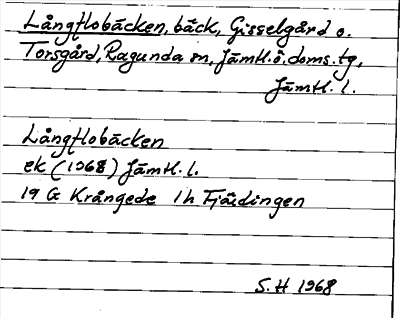 Långflobäcken, bäck, Gisselgård o.
Torsgård, Ragunda sn, Jämtl. ö. doms. tg,
Jämtl. l.
Långflobäcken
ek (1968) Jämtl. l.
19 G Krångede 1h Fjäldingen
S. H 1968